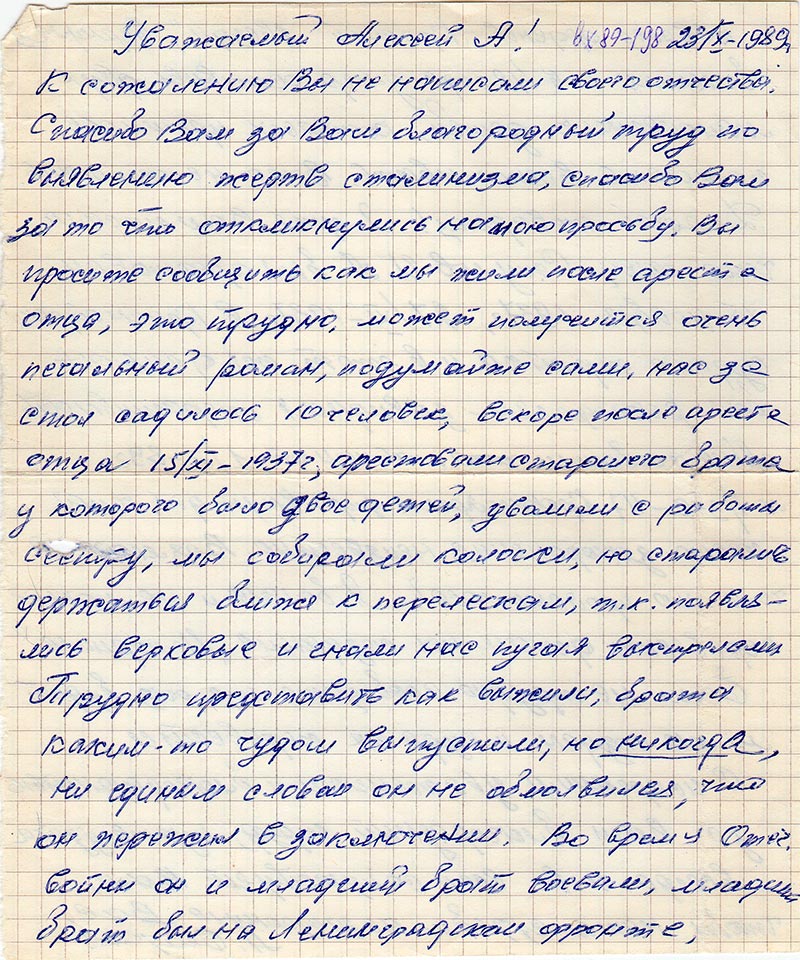 Уважаемый Алексей А! вх 89-198 23/X-1989г
К сожалению Вы не написали своего отчества.
Спасибо Вам за Ваш благородный труд по
выявлению жертв сталинизма, спасибо Вам
за то что откликнулись на мою просьбу. Вы
просите сообщить как мы жили после ареста
отца, это трудно, может получится очень
печальный роман, подумайте сами, нас за
стол садилось 10 человек, вскоре после ареста
отца 15/XI-1937г, арестовали старшего брата
у которого было двое детей, уволили с работы
сестру, мы собирали колоски, но старались
держаться ближе к перелескам, т.к. появля-
лись верховые и гнали нас пугая выстрелами
Трудно представить как выжили, брата
каким-то чудом выпустили, но никогда,
ни единым словом он не обмолвился, что
он пережил в заключении. Во время Отеч.
войны он и младший брат воевали, младший
брат был на Ленинградском фронте,